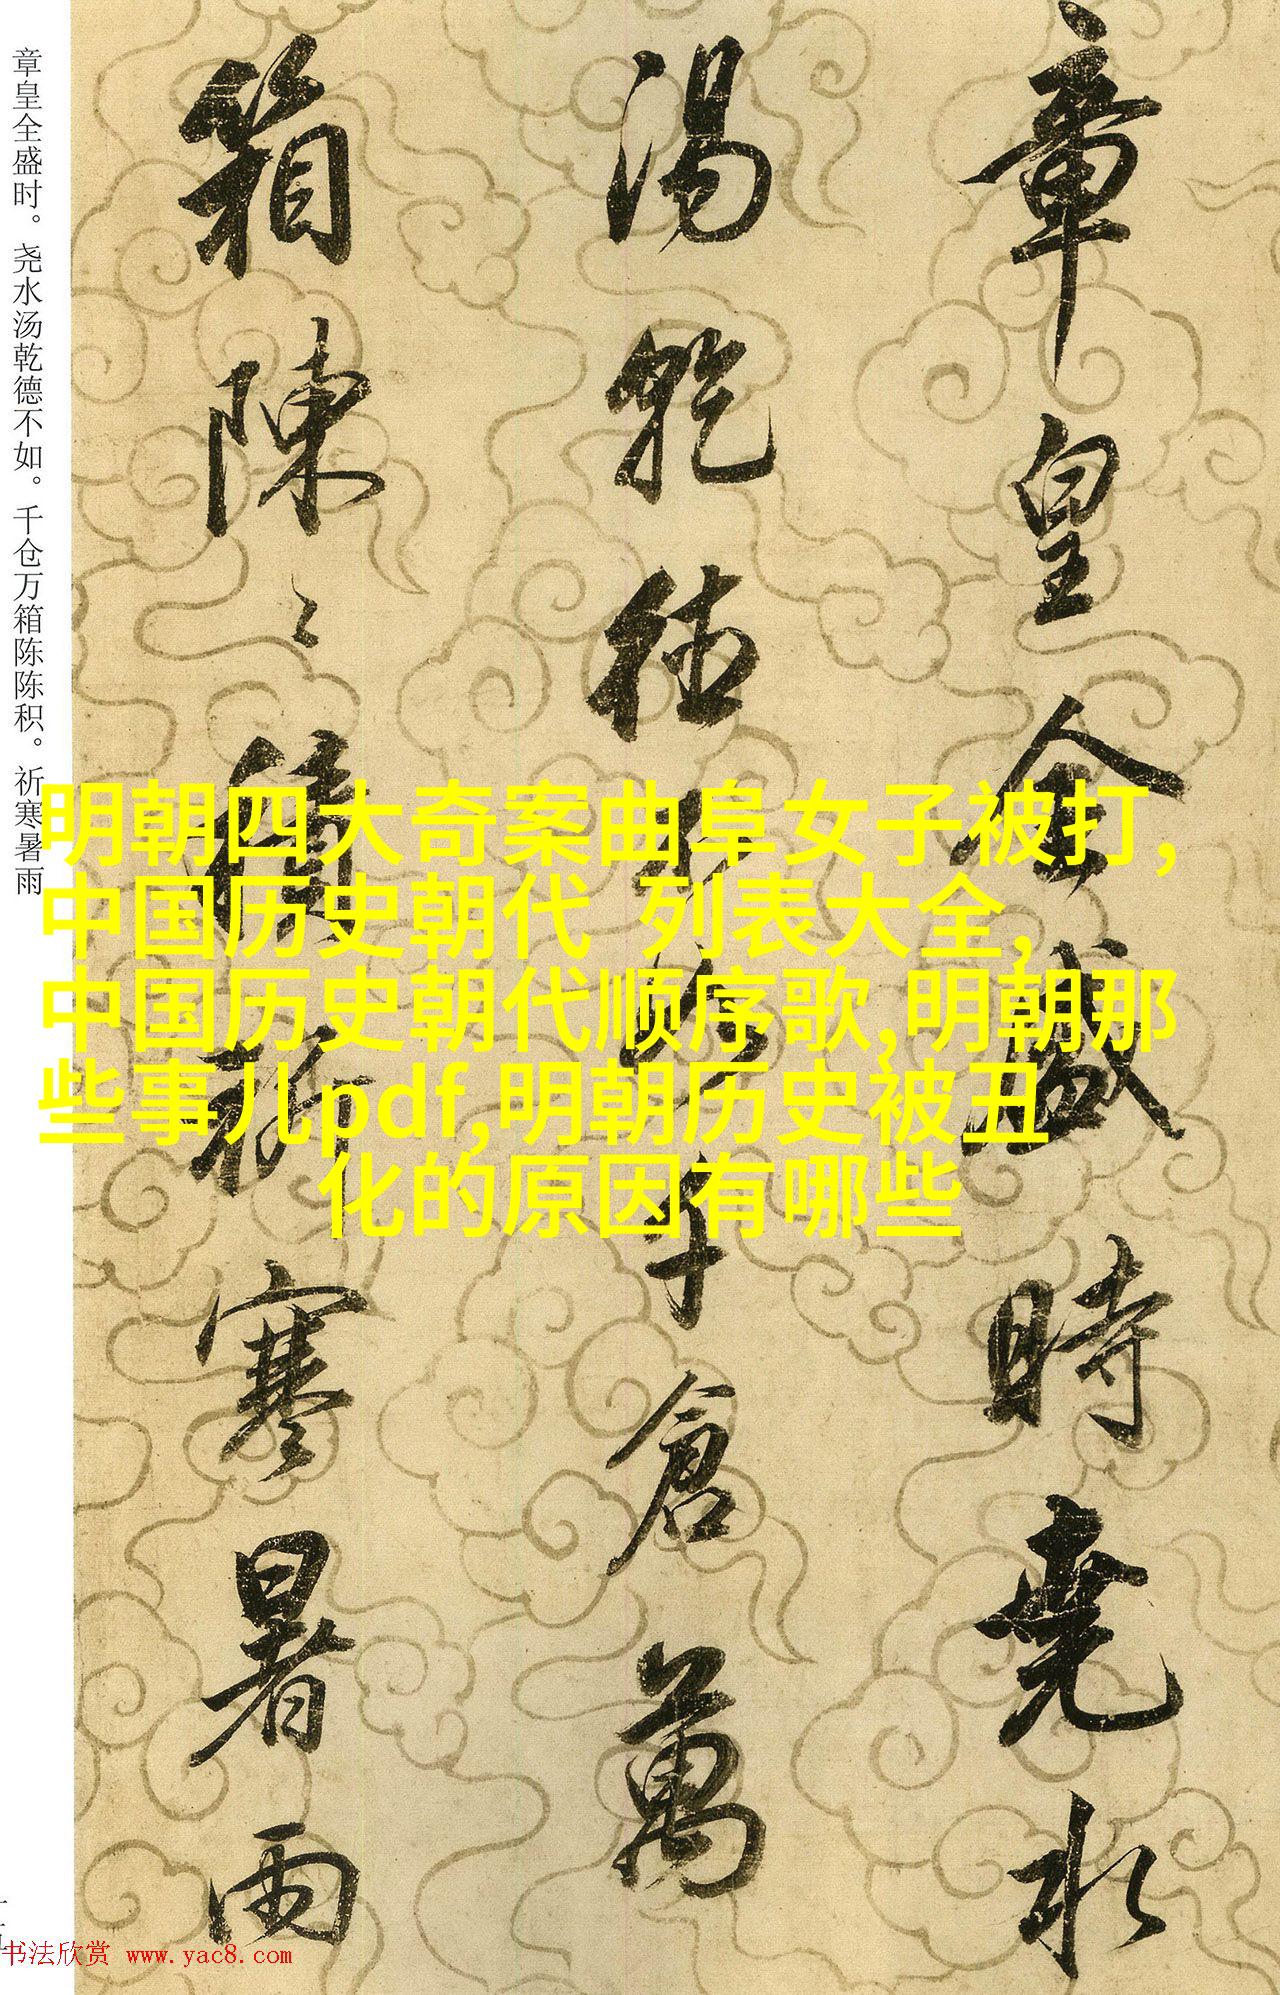 章皇全盛時堯水
湯乾德不如千倉萬
箱陳〻積祈寒暑雨
章皇全盛时。尧水汤乾德不如。千仓万箱陈陈积。祈寒暑雨
明朝四大奇案曲阜女子被打,
中国历史朝代 列表大全,
中国历史朝代顺序歌,明朝那
些事儿pdf,明朝历史被丑
化的原因有哪些
书法欣赏 www.yac8.com